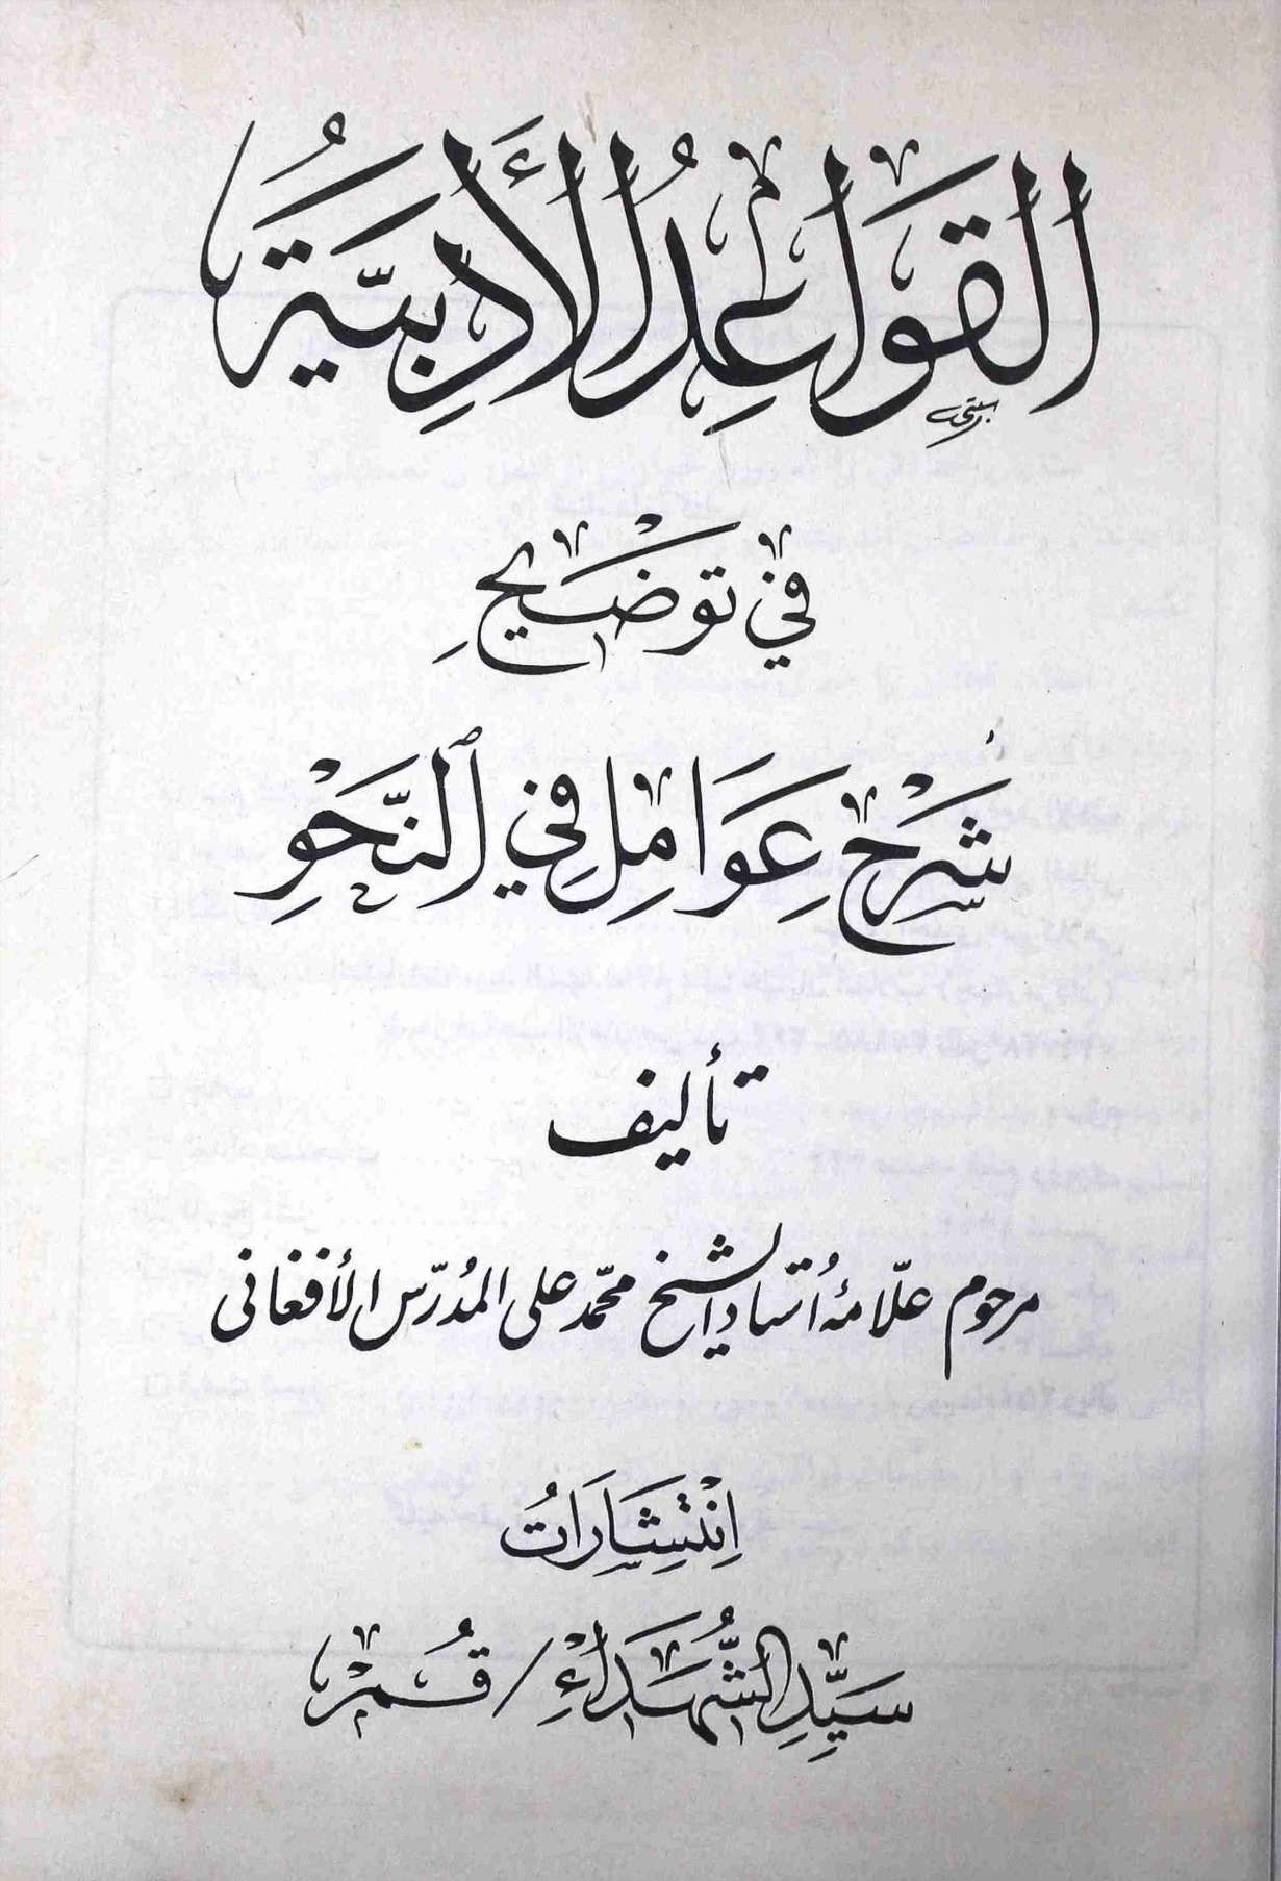 القَوَاعِدُ الأَدَبِيَّةُ
في تَوْضَيحِ
شَرْحِ عَوَامِلِ فِي ٱلنَّحْوِ
تأليف
مرحوم علّامهٔ اُستاد الشيخ محمّد على المُدرّس الأفغانى
اِنْتِشَارَاتُ
سَيِّدِ الشُّهَدَاءِ / قُمْ